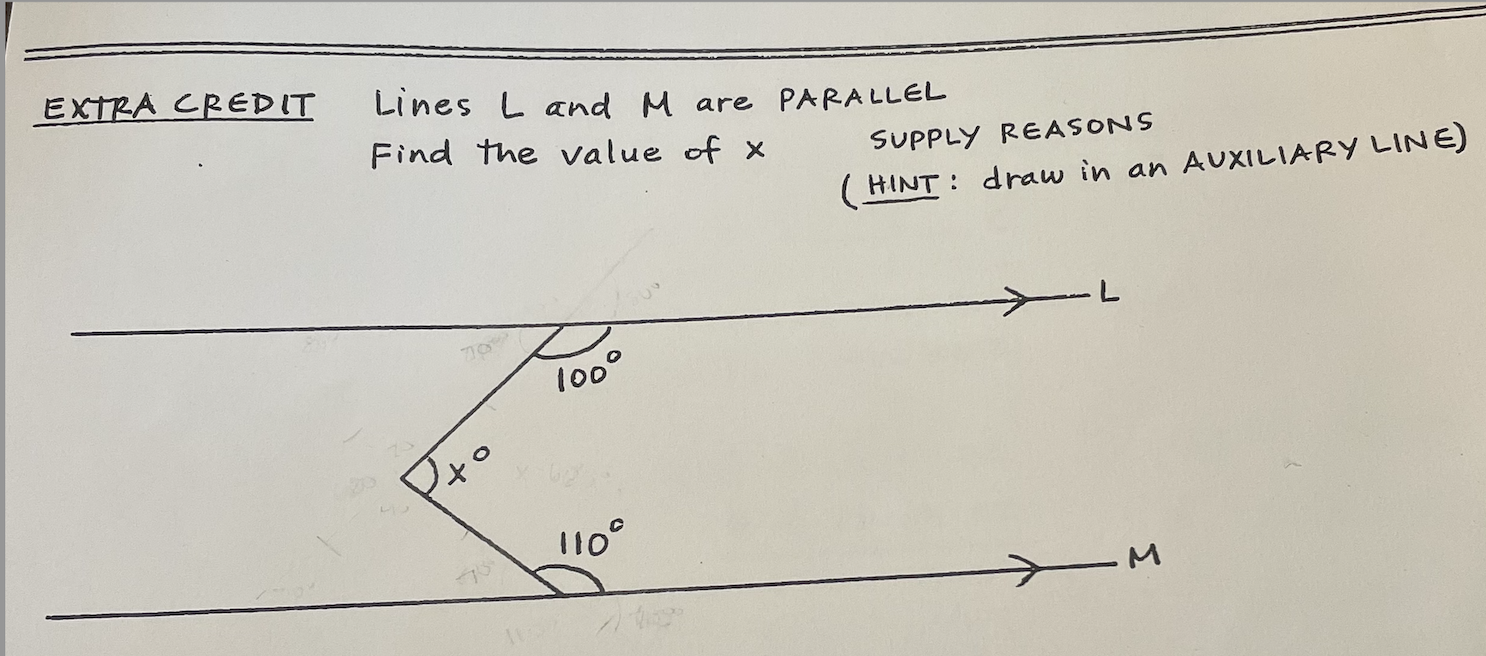 EXTRA CREDIT Lines L and M are PARALLEL
Find the value of x SUPPLY REASONS
(HINT: draw in an AUXILIARY LINE)
L
100°
x°
110°
M